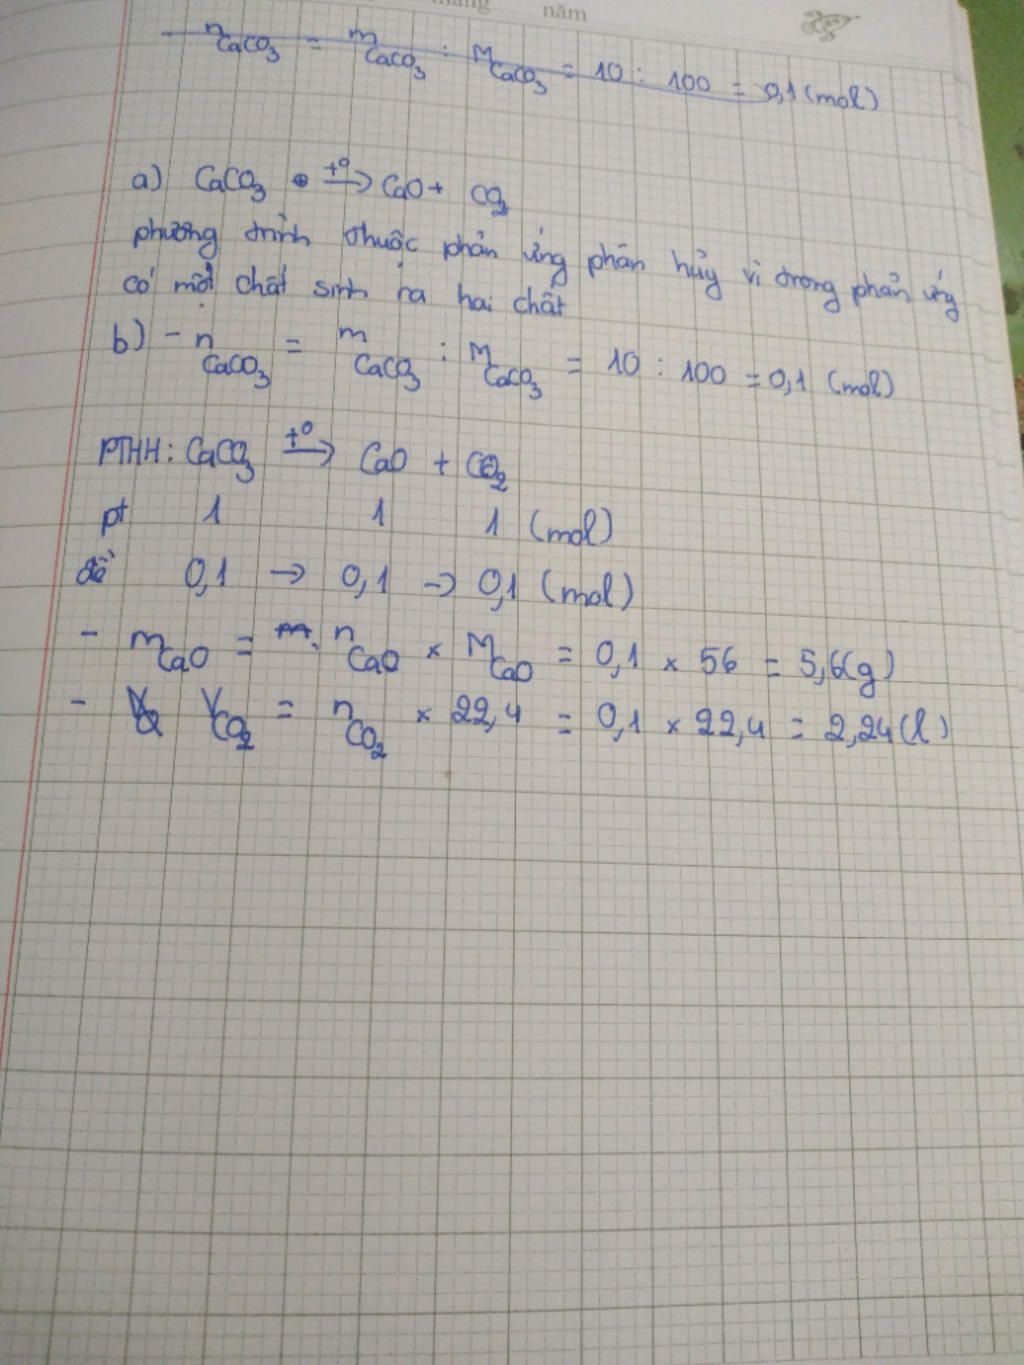 tháng năm
- nCaCO₃ = mCaCO₃ : MCaCO₃ = 10 : 100 = 0,1 (mol)
a) CaCO₃ t° → CaO + CO₂
phương trình thuộc phản ứng phân hủy vì trong phản ứng
có một chất sinh ra hai chất
b) - nCaCO₃ = mCaCO₃ : MCaCO₃ = 10 : 100 = 0,1 (mol)
PTHH: CaCO₃ t° → CaO + CO₂
pt 1 1 1 (mol)
đề 0,1 → 0,1 → 0,1 (mol)
- mCaO = nCaO × MCaO = 0,1 × 56 = 5,6(g)
- VCO₂ = nCO₂ × 22,4 = 0,1 × 22,4 = 2,24(l)